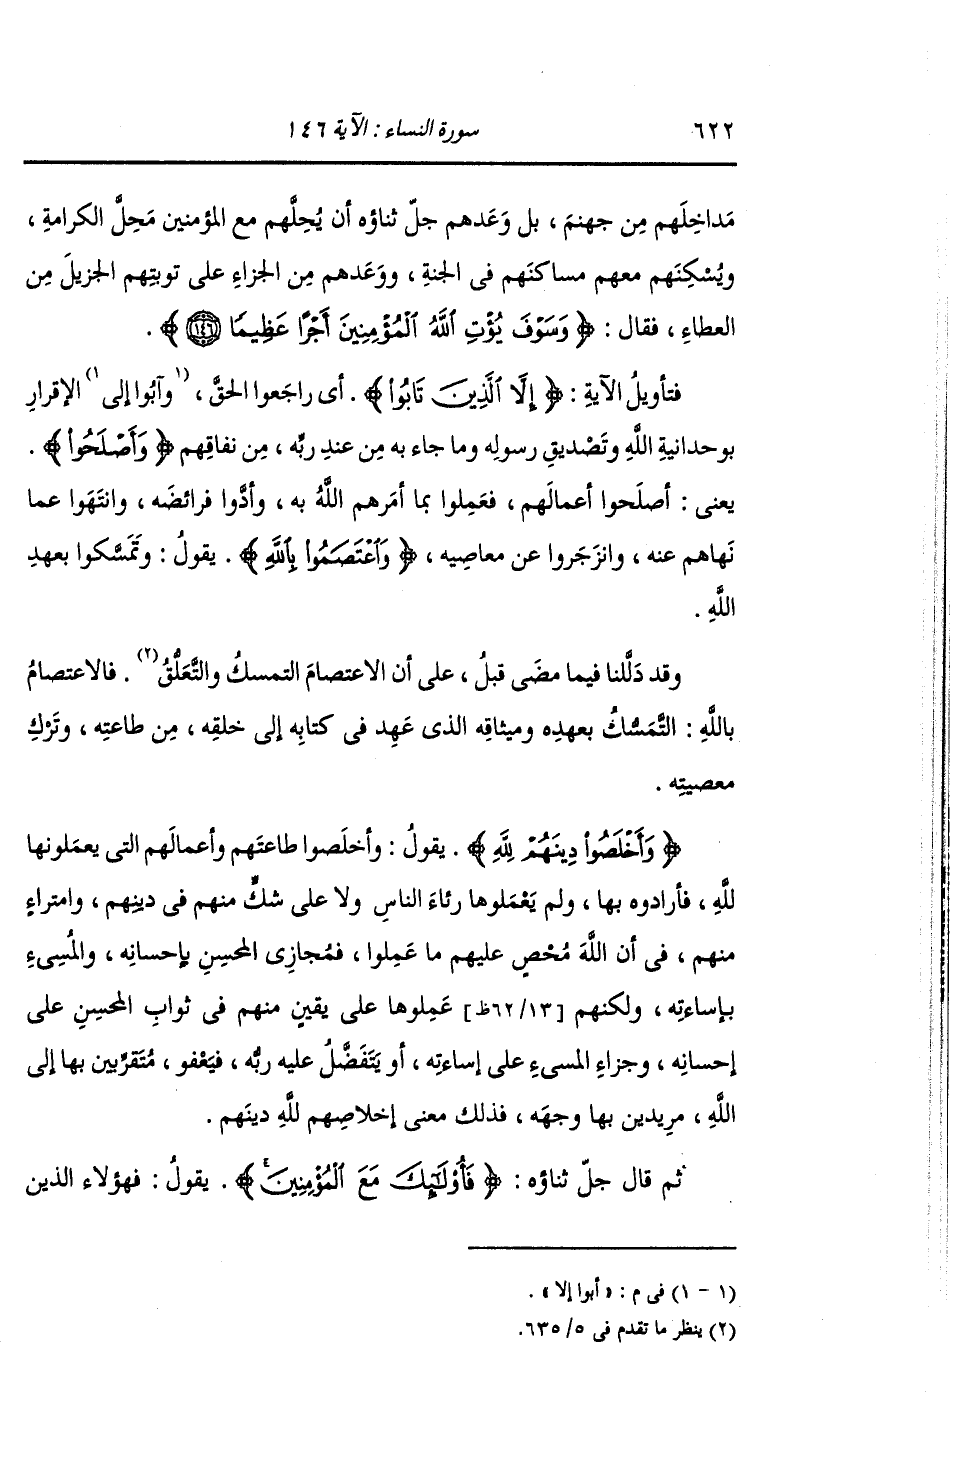 ٦٢٢ سورة النساء : الآية ١٤٦
مَداخِلَهم مِن جهنمَ ، بل وَعَدهم جلّ ثناؤه أن يُحِلَّهم مع المؤمنين مَحِلَّ الكرامةِ ،
ويُسْكِنَهم معهم مساكنَهم فى الجنةِ ، ووَعَدهم مِن الجزاءِ على توبتِهم الجزيلَ مِن
العطاءِ ، فقال : ﴿ وَسَوْفَ يُؤْتِ ٱللَّهُ ٱلْمُؤْمِنِينَ أَجْرًا عَظِيمًا ١٤٦ ﴾ .
فتأويلُ الآيةِ : ﴿ إِلَّا ٱلَّذِينَ تَابُوا۟ ﴾ . أى راجَعوا الحقَّ ، (١وآبُوا إلى ١) الإقرارِ
بوحدانيةِ اللَّهِ وتَصْديقِ رسولِه وما جاء به مِن عندِ ربِّه ، مِن نفاقِهم ﴿ وَأَصْلَحُوا۟ ﴾ .
يعنى : أصلَحوا أعمالَهم ، فعَمِلوا بما أمَرهم اللَّهُ به ، وأدَّوا فرائضَه ، وانتَهَوا عما
نَهاهم عنه ، وانزَجَروا عن معاصِيه ، ﴿ وَٱعْتَصَمُوا۟ بِٱللَّهِ ﴾ . يقولُ : وتَمَسَّكوا بعهدِ
اللَّهِ .
وقد دَلَّلنا فيما مضَى قبلُ ، على أن الاعتصامَ التمسكُ والتَّعَلُّقُ (٢) . فالاعتصامُ
باللَّهِ : التَّمَسُّكُ بعهدِه وميثاقِه الذى عَهِد فى كتابِه إلى خلقِه ، مِن طاعتِه ، وتَرْكِ
معصيتِه .
﴿ وَأَخْلَصُوا۟ دِينَهُمْ لِلَّهِ ﴾ . يقولُ : وأخلَصوا طاعتَهم وأعمالَهم التى يعمَلونها
للَّهِ ، فأرادوه بها ، ولم يَعْمَلوها رئاءَ الناسِ ولا على شكٍّ منهم فى دينِهم ، وامتراءٍ
منهم ، فى أن اللَّهَ مُحْصٍ عليهم ما عَمِلوا ، فمُجازِى المحسِنِ بإحسانِه ، والمُسِىءِ
بإساءتِه ، ولكنهم [٦٢/١٣ظ] عَمِلوها على يقينٍ منهم فى ثوابِ المحسِنِ على
إحسانِه ، وجزاءِ المسىءِ على إساءتِه ، أو يَتَفَضَّلُ عليه ربُّه ، فيَعْفو ، مُتَقَرِّبين بها إلى
اللَّهِ ، مريدين بها وجهَه ، فذلك معنى إخلاصِهم للَّهِ دينَهم .
ثم قال جلّ ثناؤه : ﴿ فَأُو۟لَـٰٓئِكَ مَعَ ٱلْمُؤْمِنِينَ ﴾ . يقولُ : فهؤلاء الذين
(١ - ١) فى م : « أبوا إلا » .
(٢) ينظر ما تقدم فى ٥/ ٦٣٥.